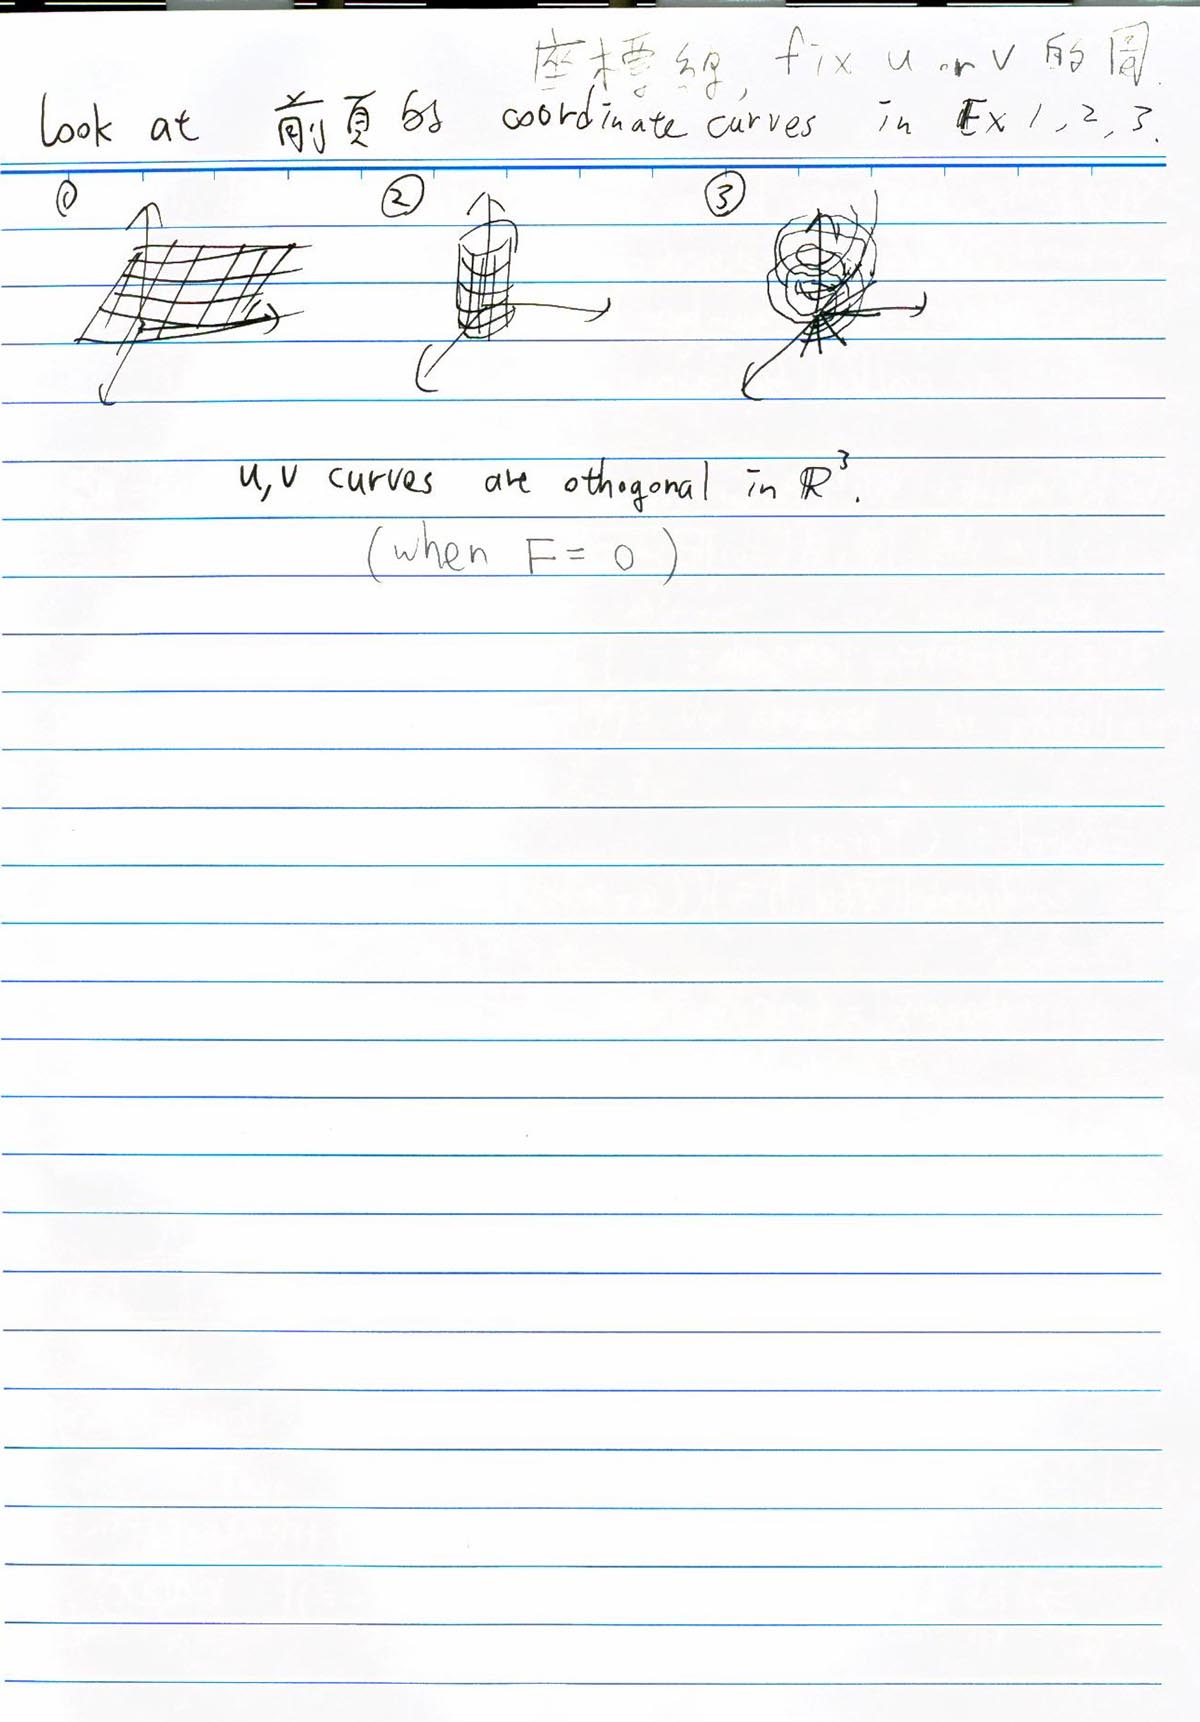 座標線, fix u or v 的圖.
Look at 前頁的 coordinate curves in Ex 1, 2, 3.
① ② ③
u, v curves are othogonal in ℝ³.
(when F = 0)